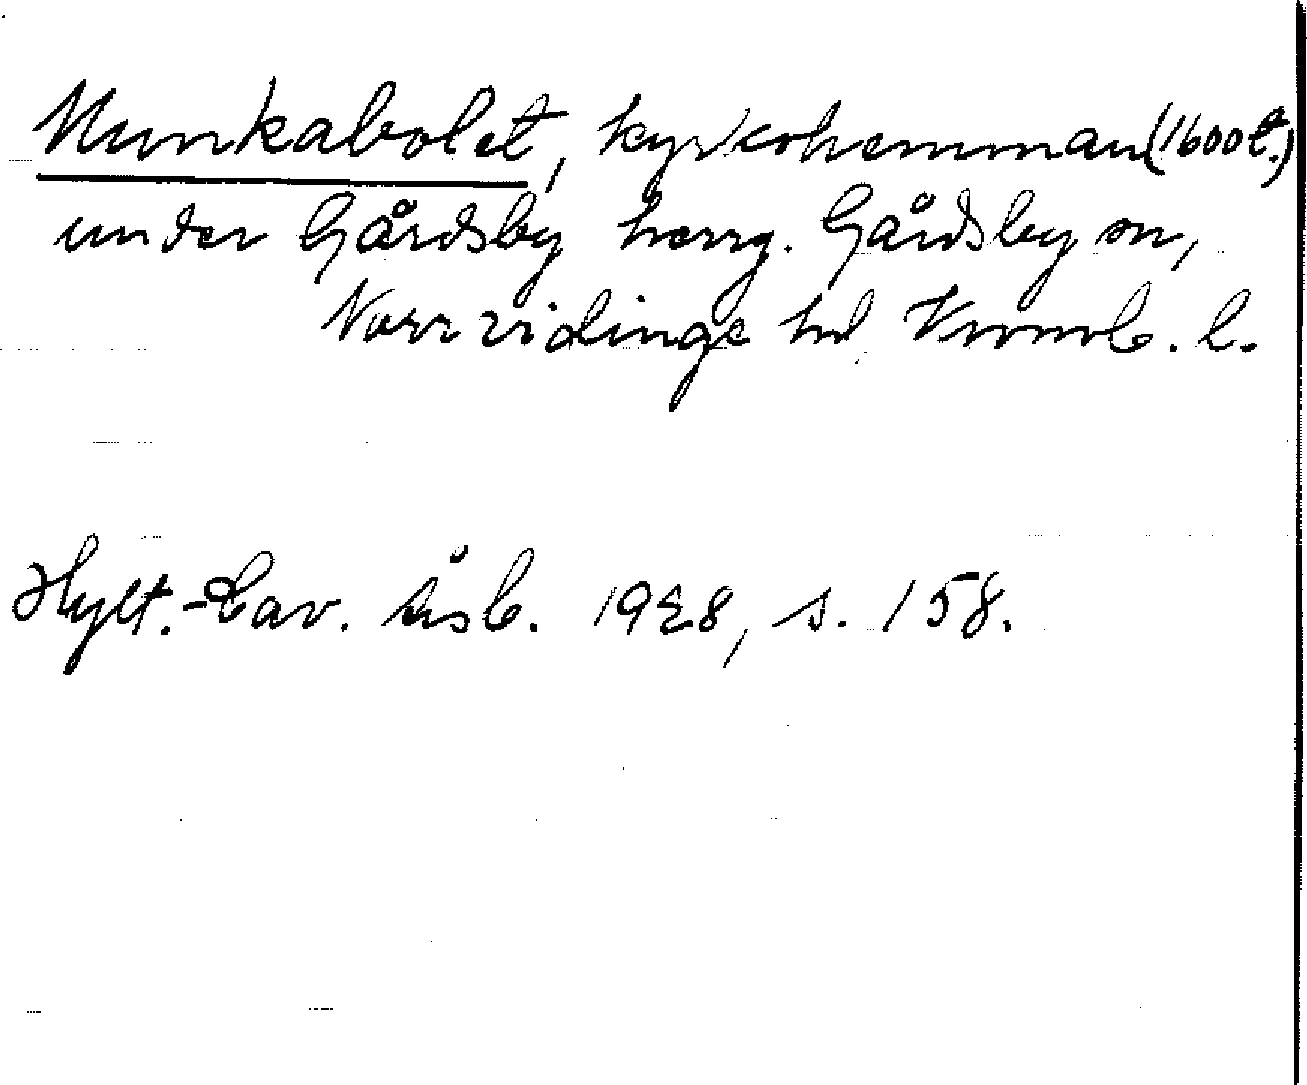 Munkabolet, kyrkohemman (1600 t.)
under Gårdsby herrg. Gårdsby sn,
Norrvidinge hd Kronob. l.
Hylt.-Cav. årsb. 1928, s. 158.